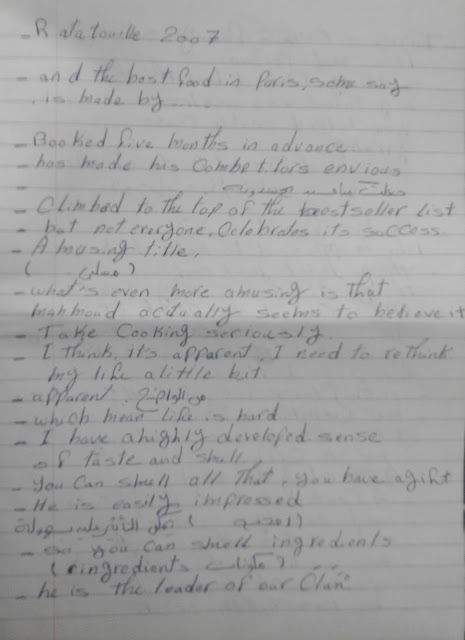 - Ratatouille 2007
- and the best food in Paris, some say
. is made by ......
- Booked five months in advance
- has made his Combettors envious
- Climbed to the top of the bestseller list
- but not everyone, Celebrates its success
- Amusing title,
- what's even more amusing is that
mahmoud actually seems to believe it
- Take Cooking seriously.
- I think, it's apparent, I need to rethink
my life alittle bit.
- apparent من الواضح
- which mean life is hard
- I have ahighly developed sense
of taste and smell,
- You Can smell all that, you have agift
- He is easily impressed
- so you can smell ingredients
( ingredients مكونات )
- he is the leader of our Clan